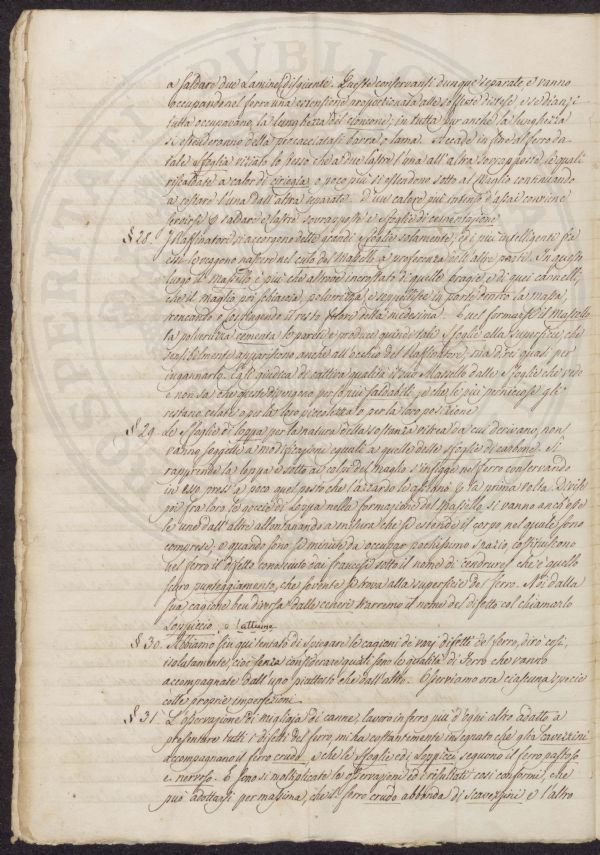 a saldare due Lamine disgiunte. Queste conservansi dunque separate, e vanno
occupando nel ferro una estensione proporzionata alle soffiate distese, e se dianzi
tutta occupavano la lunghezza del cioncone, in tutta pur anche la lunghezza
si estenderanno della procacciatasi barra o lama. Accade in fine al ferro da
tale sfoglia viziato lo stesso che a due lastre l'una all'altra sovrapposte, le quali
riscaldate a calor di ciriegia, o poco più si estendono sotto al Maglio continuando
a restare l'una dall'altra separate. D'un calore più intenso d'assai conviene
servirsi a saldare e lastre sovrapposte e sfoglie di cementazione.
§ 28. I Raffinatori si accorgono delle grandi sfoglie solamente, ed i più intelligenti fra
essi le veggono nascere nel culo del Massello a preferenza dell'altre parti. In questo
luogo il Massello è più che altrove incrostato di quelle bragie, e di quei cannelli,
che il maglio poi schiaccia, polverizza, e seppellisce in parte dentro la massa,
troncando e sospingendo il resto fuori della medesima. E nel formarsi il Massello
la polverizza cementa le pareti e produce quindi tali sfoglie alla superficie, che
sensibilmente appariscono anche all'occhio del Raffinatore, sia direi quasi per
ingannarlo. Egli giudica di cattiva qualità il suo Massello dalle sfoglie che vede
e non sa che queste divengono per lo più saldabili, e che le più perniciose gli
restano celate o per la loro picciolezza o per la loro posizione.
§ 29. Le sfoglie di loppa per la natura della sostanza vitrea da cui derivano, non
vanno soggette a modificazioni eguali a quelle delle sfoglie di carbone. Si
rapprende la loppa e sotto ai colpi del Maglio s'infrage nel ferro conservando
in esso press'a poco quel posto che l'azzardo le assegnò la prima volta. Divisi
poi fra loro le goccie di Loppa nella formazione del Massello, si vanno anch'esse
le une dall'altre allontanando a misura che si estende il corpo nel quale sono
comprese; e quando sono sì minute da occupar pochissimo spazio costituiscono
nel ferro il difetto conosciuto dai francesi sotto il nome di cendrures che è quello
scuro punteggiamento, che sovente si trova alla superficie del ferro. Noi dalla
sua cagione ben diversa dalle ceneri trarremo il nome del difetto col chiamarlo
Loppiccio. o lattume
§ 30. Abbiamo fin qui tentato di spiegare le cagioni de' varj difetti del ferro, dirò così,
isolatamente, cioè senza considerare quali sono le qualità di Ferro che vanno
accompagnate dall'uno piuttosto che dall'altro. Osserviamo ora ciascuna specie
colle proprie imperfezioni.
§ 31. L'osservazione di migliaja di canne, lavoro in ferro, più d'ogni altro adatto a
presentare tutti i difetti del ferro, mi ha costantemente insegnato che gli scavezzini
accompagnano il ferro crudo, e che le sfoglie ed i Loppicci seguono il ferro pastoso
e nervoso. E sono sì moltiplicate le osservazioni ed i risultati così conformi, che
può adottarsi per massima, che il ferro crudo abbonda di scavezzini e l'altro